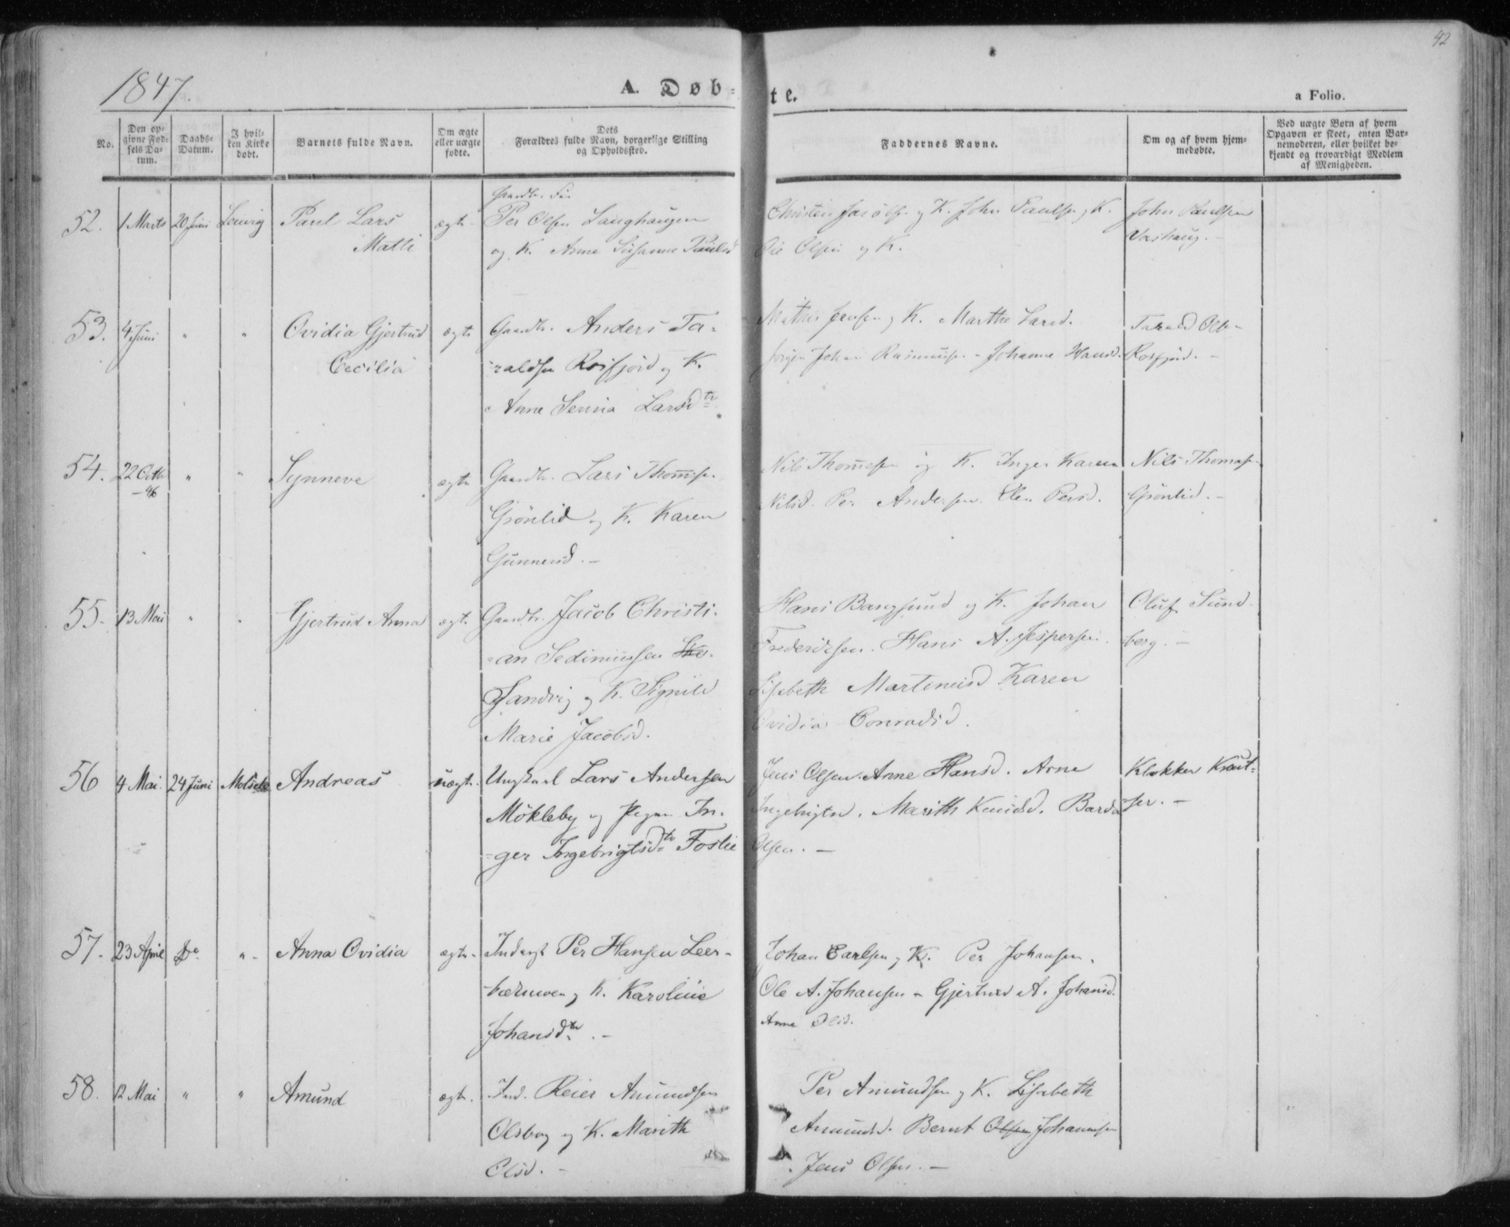 42
1847.
A. Døb-
te.
a Folio.
No.
Den op-
givne Fød-
sels Da-
tum.
Daabs-
Datum.
I hvil-
ken Kirke
døbt.
Barnets fulde Navn.
Om ægte
eller uægte
fødte.
Dets
Forældres fulde Navn, borgerlige Stilling
og Opholdssted.
Faddernes Navne.
Om og af hvem hjem-
medøbte.
Ved uægte Børn af hvem
Opgaven er skeet, enten Bar-
nemoderen, eller hvilket be-
kjendt og troværdigt Medlem
af Menigheden.
52. 1 Marts 20 Juni Paul Lars
Matti
ægt.
Per Olsen Langhaugen
og K. Anne Susanne Paulsd
K. John Paulsen og K.
Ole Olsen og K.
John Paulsen
53. 4 Juni " " Ovidia Gjertrud
Cecilia
ægt.
Gaardbr. Anders Ta-
raldsen Rossfjord og K.
Anna Larsdtr.
Jensen og K. Marthe Larsd.
Johan Rasmusen - Johanna Hansd.
Tarald Ols-
Rosfjord. -
54. 22 Octb
-46
" " Synneve
ægt.
Gaardbr. Lars Thomsen
Grønlid og K. Karen
Gunnersd. -
Nils Thomesen og K. Inger Karen
Nilsd. Per Andersen. Elen Persd.
Nils Thomasen
Grønlid. -
55. 13 Mai " " Gjertrud Anna
ægt.
Gaardbr. Jacob Christi-
-an Sediniusen
Sandvig og K. Signild
Marie Jacobsd.
Hans Bangsund og K. Johan
Frederiksen. Hans A. Jespersen.
Lisabeth Martinusd Karen
Ovidia Conradsd.
Oluf Sund-
berg. -
56 4 Mai. 24 Juni Andreas
uægt.
Ungkarl Lars Andersen
Møkleby og Pigen In-
-ger Ingebrigtsdtr Foslie
Jens Olsen. Anne Hansd. Arne
Ingebrigtsd. Marith Knudsd. Bard
Olsen. -
Klokker Knut-
sen. -
57. 23 April Do " Anna Ovidia
ægt.
Inderst Per Hansen Leer-
bærmoen og K. Karoline
Johansdtr. -
Johan Carlsen og K. Per Johansen.
Ole A. Johansen - Gjertrud A. Johansd.
Anne Olsd.
58. 12 Mai " " Amund
ægt.
Ind. Reier Amundsen
Olsborg og K. Marith
Olsd. -
Per Amundsen og K. Lisabeth
Amundsd. Bernt Johannesen
Jens Olsen. -